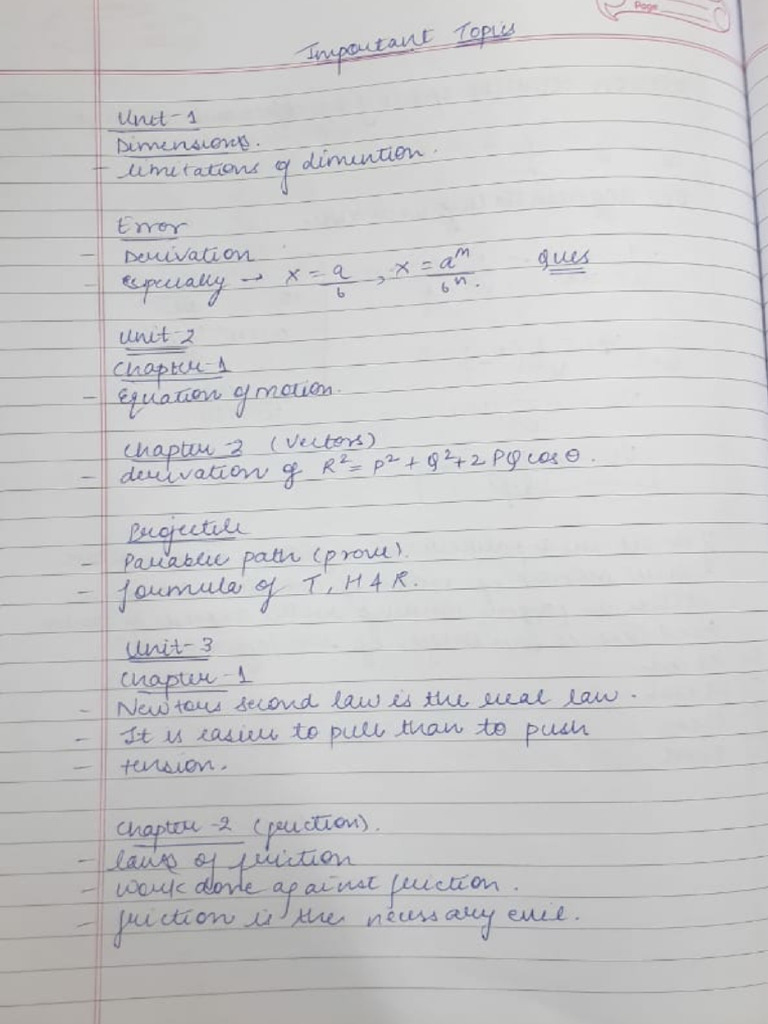 Page
Important Topics
Unit-1
Dimensions.
- limitations of dimention.
Error
- Derivation
- especially → x = a/b , x = a^m/b^n. Ques
Unit-2
Chapter-1
- Equation of motion.
Chapter-2 (Vectors)
- derivation of R² = P² + Q² + 2PQ cos θ.
Projectile
- path (prove).
- formula of T, H & R.
Unit-3
Chapter-1
- Newtons second law is the real law.
- It is easier to pull than to push
- tension.
Chapter-2 (friction).
- laws of friction
- work done against friction.
- friction is the necessary evil.